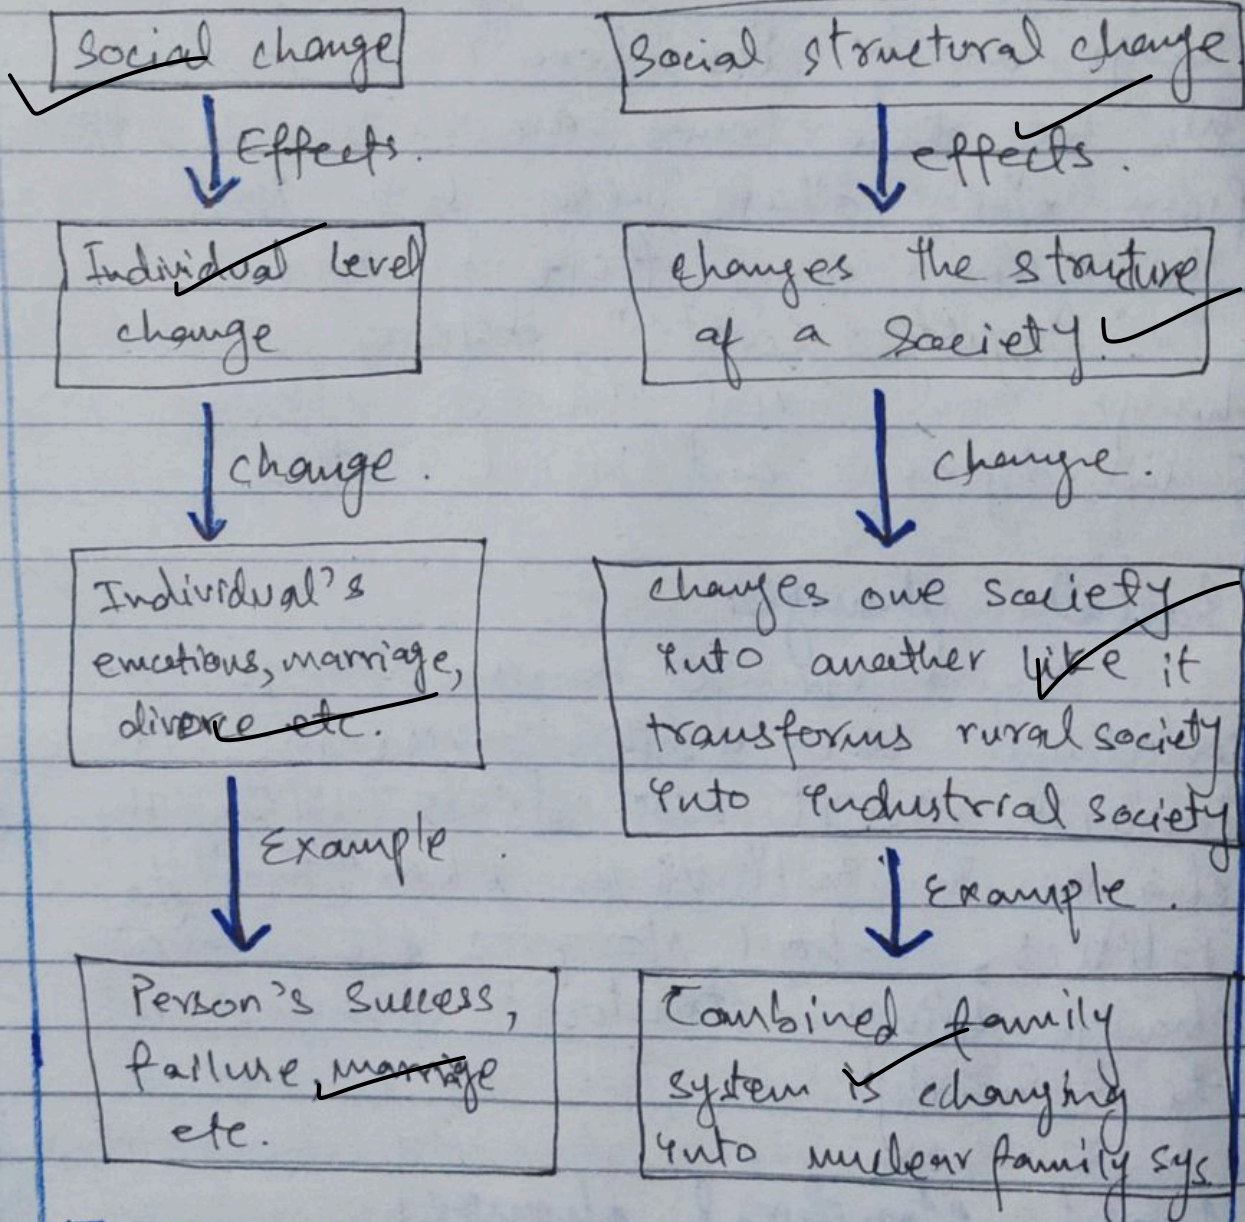 Social change
Effects.
Individual level
change
change.
Individual's
emotions, marriage,
divorce etc.
Example
Person's Success,
failure, marrige
etc.
Social structural change
effects.
changes the structure
of a Society.
Change.
changes one society
into another like it
transforms rural society
into industrial society
Example.
Combined family
system is changing
into nuclear family sys.